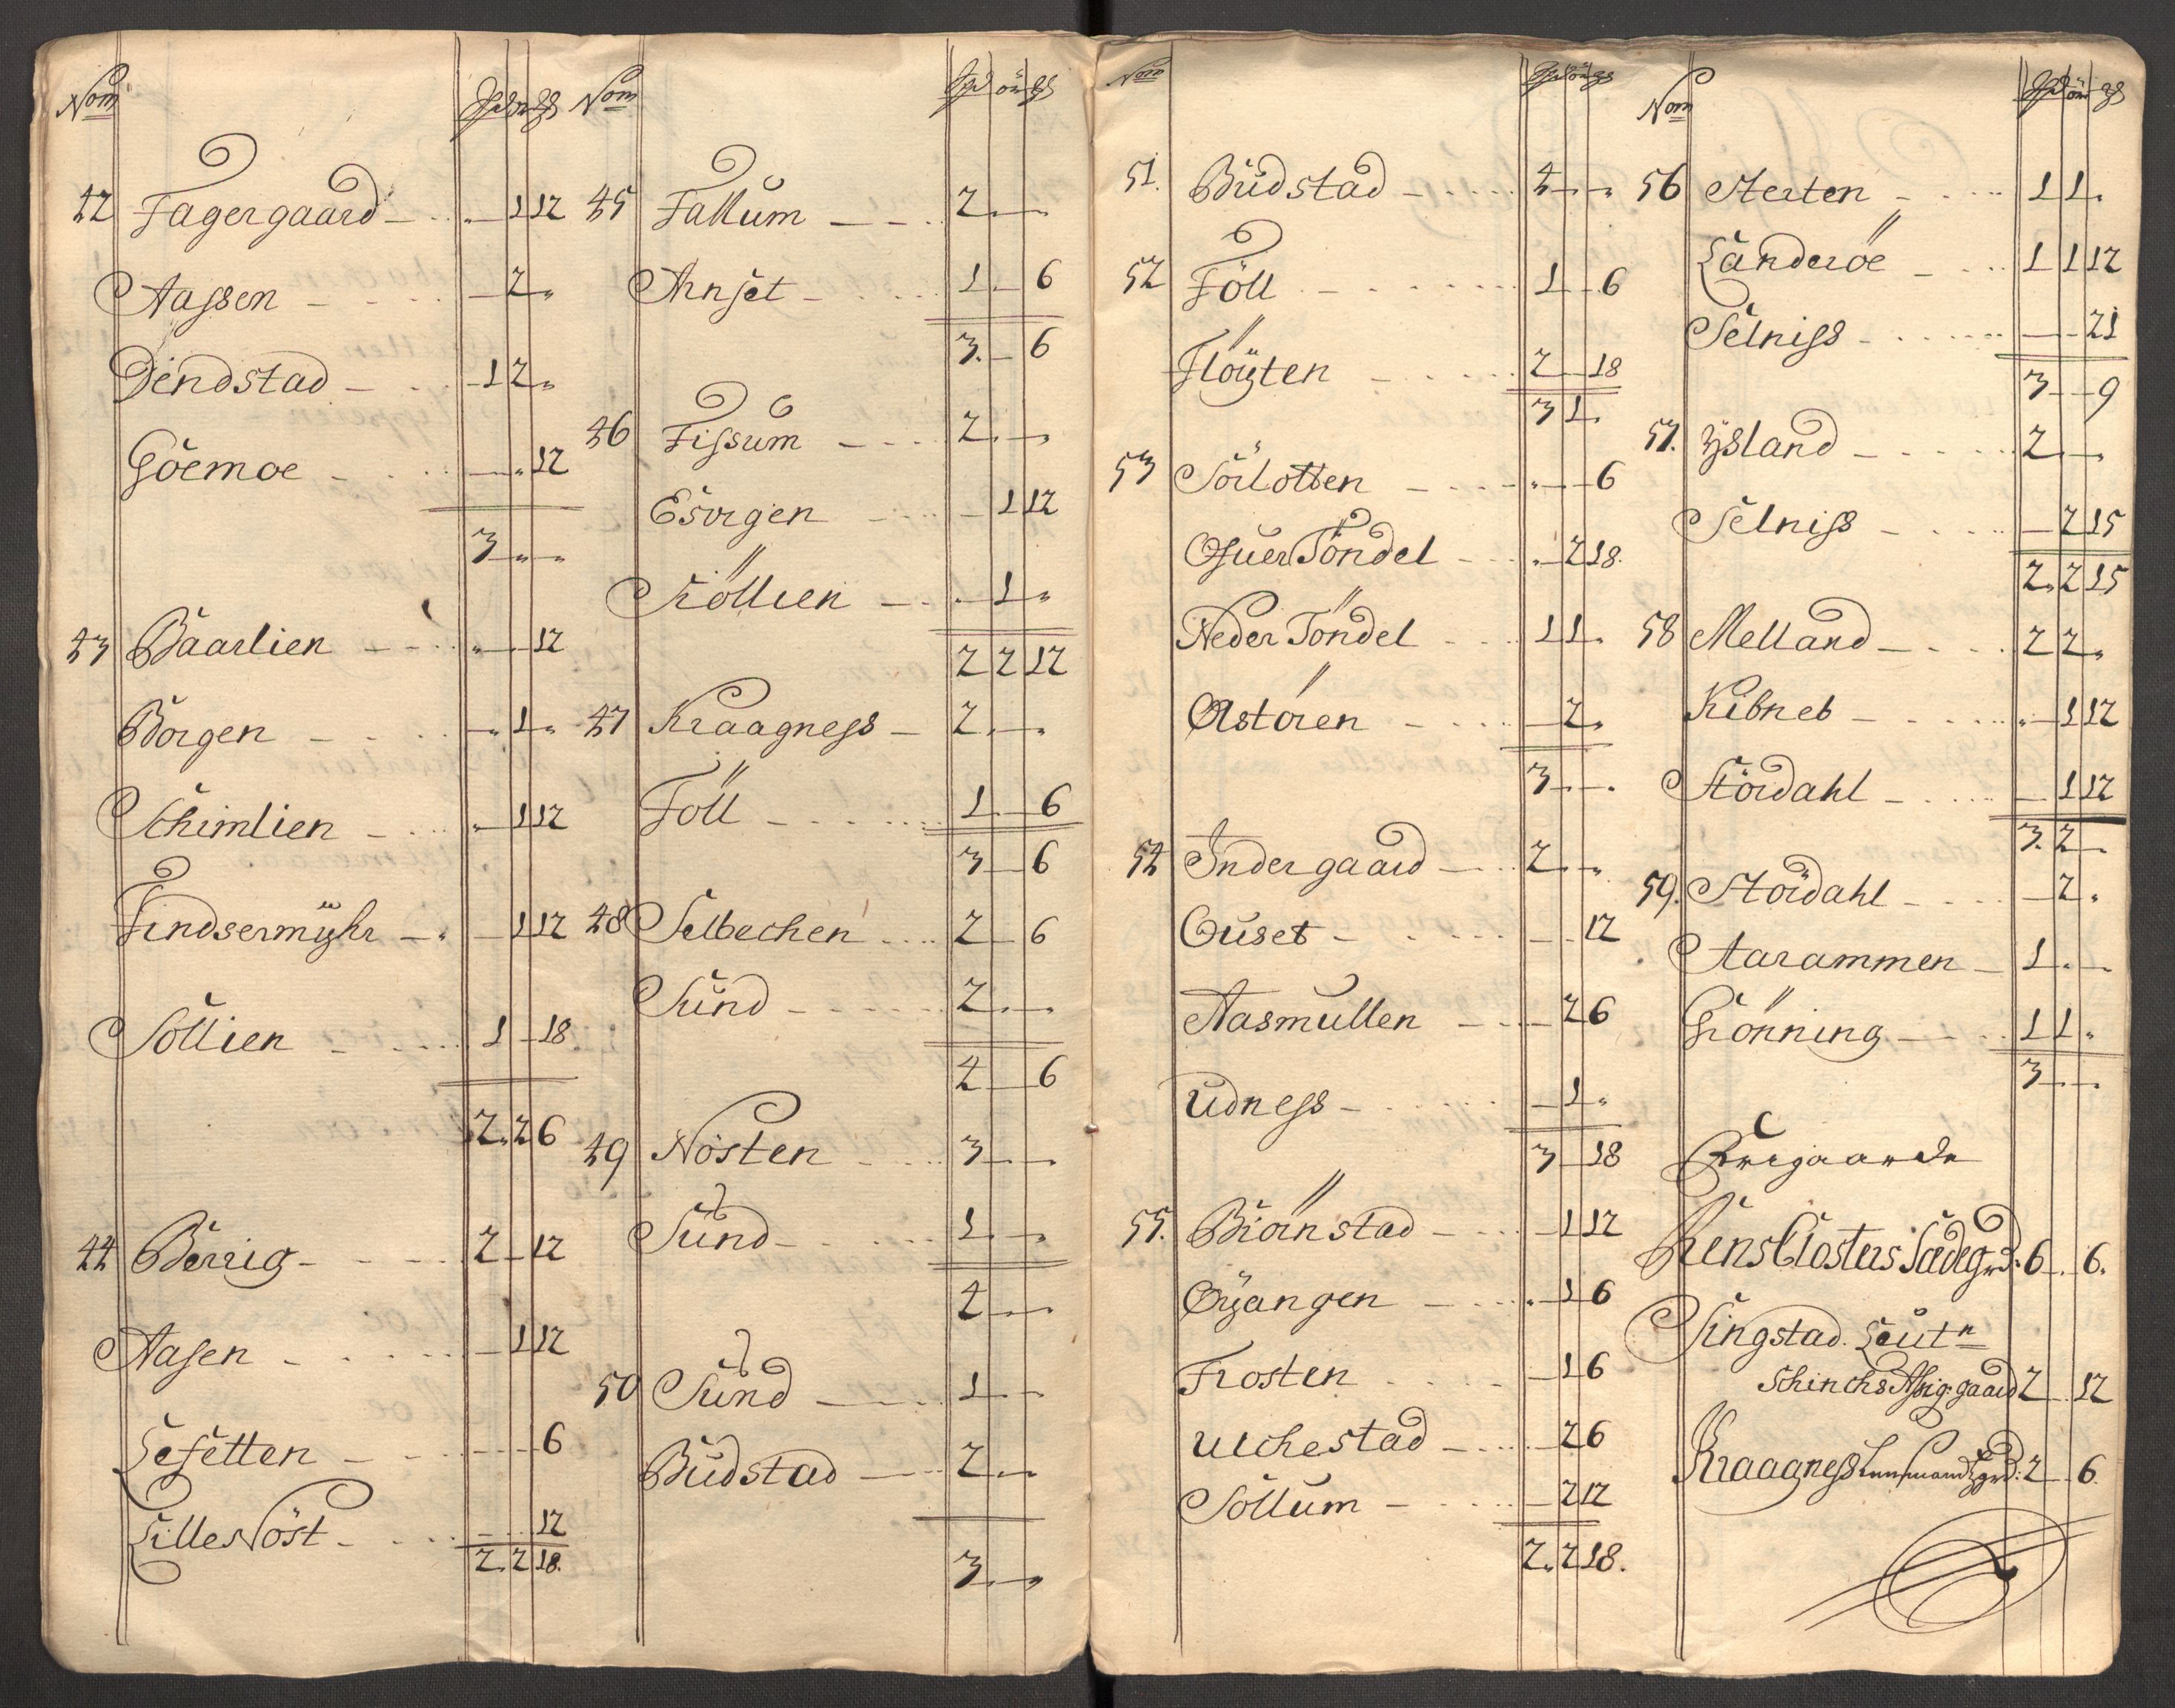 Nom Spd ör ₰
42 Fagergaard - . „ - 1 12
Aassen - . . . - 2 „
Dendstad - . . 1 2 „
Göemoe - . . - „ 12
3 „ „
43 Baarlien - . . „ - 12
Borgen - . . . „ 1 „
Schimlien - . . „ 1 12
Findsermyhr - . - 1 12
Sollien - . . . 1 - 18
2 „ 2 6
44 Berrig - . . . 2 - 12
Aasen - . . . - 1 12
Lesetten - . . - - 6
Lille Nöst - . . - - 12
2 . 2 18.
Nom Spd ör ₰
45 Fallum - - . 2 . -
Arnset - . . . 1 . - 6
3. - 6
46 Fissum - - . 2 . - „
Esvigen - . . - 1 12
Kiöllien - . . - 1 „
2 2 12
47 Kraagness - 2 . - „
Föll - . . . . 1 . - 6
3 - 6
48 Selbechen . . . 2 - 6
Sund - . . . . 2 . - „
4 - 6
49 Nösten - . . . 3 - „
Sund - . . . . 1 . - „
4 . - „
50 Sund - . . . 1 . - -
Budstad - . . 2 . - „
3 . - „
Nom Spd ör ₰
51. Budstad - . . . 4 - „ - „
52 Föll - . . . . 1 - 6
Flöyten - . . . . 2 - 18
3 1 .
53 Sörlotten - . . . „ - - 6
Ofuer Töndel - . . „ - 2 18.
Neder Töndel - . . 1 1 „
Astören - . . . - 2 „
3 - „ - „
54 Indergaard - . . 2 - „ - „
Ouset - . . . . - - 12
Aasmullen - . . - 2 6
Udness - . . . . - 1 „
3 - 18
55. Biörnstad - . . . - 1 12
Öyangen - . . . „ - 1 6
Frosten . . . . - 1 6
Ulchestad - . . . - 2 6
Sollum - . . . . - 2 12
2 „ 2 18.
Nom Spd ör ₰
56 Sterten - . . . 1 1 „
Landeröe - . . . 1 1 12
Selniss - . . . . - - 21
3 - - 9
57. Ysland - . . . . 2 - „
Selniss - . . . . - 2 15
2 „ 2 15
58 Melland - . . . 2 2 „
Kibneb - . . . . „ - 1 12
Stördahl - . . . . - 1 12
3. 2 - „
59. Stördahl - . . . - 2 „
Aarammen - 1 . - „
Grönning - . . . 1 1 „
3 - „ - „
Reins Closters Sædegrd: 6 . - 6.
Singstad. Leutn
Schinchs Assig: gaard 2 - 12
Kraagness 2 - 6